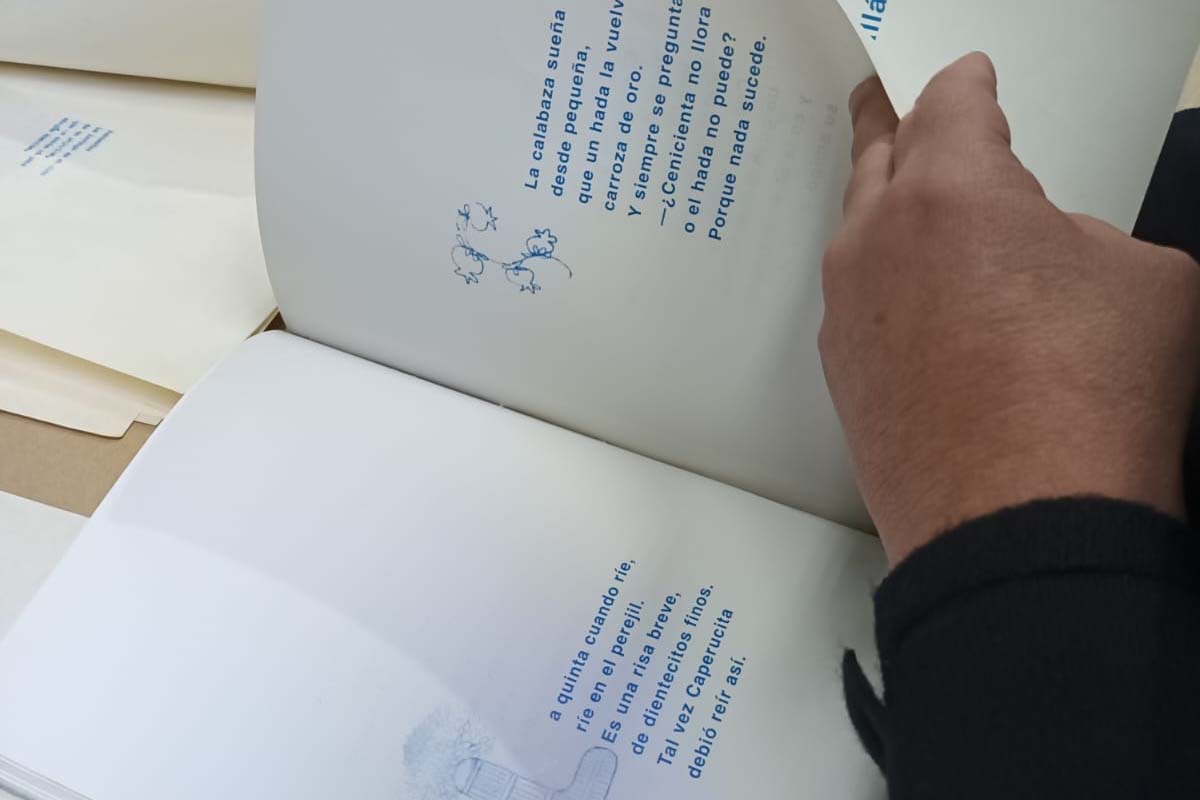 La calabaza sueña
desde pequeña,
que un hada la vuelv
carroza de oro.
Y siempre se pregunta
—¿Cenicienta no llora
o el hada no puede?
Porque nada sucede.
llá
a quinta cuando ríe,
ríe en el perejil.
Es una risa breve,
de dientecitos finos.
Tal vez Caperucita
debió reír así.